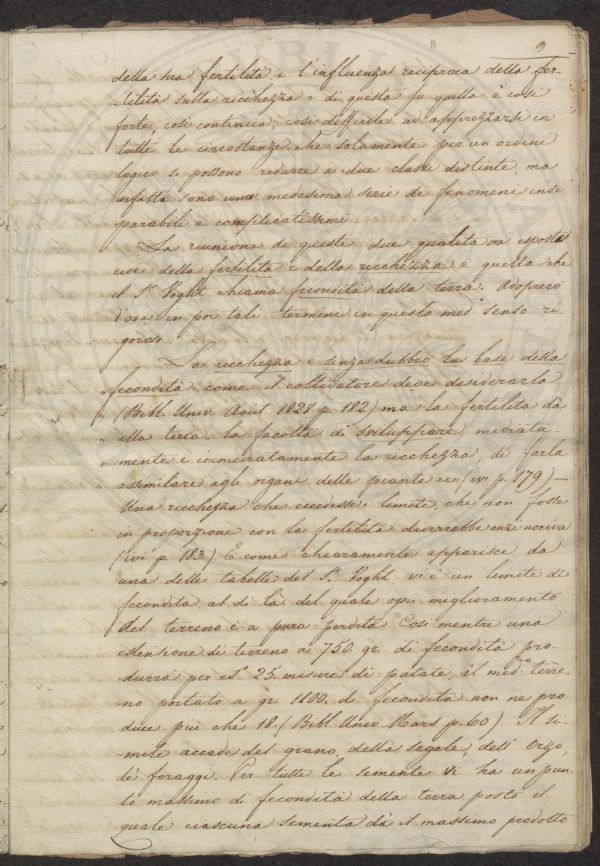 9
della sua fertilità e l'influenza reciproca della fer-
tilità sulla ricchezza e di questa su quella è così
forte, così continua, così difficile ad apprezzarsi in
tutte le circostanze che solamente per un ordine
logico si possono ridurre a due classi distinte, ma
infatti sono una medesima serie di fenomeni inse
parabili e complicatissimi
La riunione di queste due qualità ora esposte
cioè della fertilità e della ricchezza è quella che
il Sr. Voght chiama fecondità della terra. Adoprerò
d'ora in poi tali termini in questo med. senso ri-
goroso.
La ricchezza è senza dubbio la base della
" fecondità come il coltivatore deve desiderarla
" (Bibl. Univ. Août 1828 p. 182) ma la fertilità dà
" alla terra la facoltà di sviluppare mediata-
" mente e immediatamente la ricchezza, di farla
" assimilare agli organi delle piante ec (ivi p. 179) —
Una ricchezza che eccedesse i limiti, che non fosse
in proporzione con la fertilità diverrebbe anzi nociva
(ivi p. 183.) E come chiaramente apparisce da
una delle tabelle del Sr. Voght, vi è un limite di
fecondità, al di là del quale ogni miglioramento
del terreno è a pura perdita. Così mentre una
estensione di terreno a 750. gr. di fecondità pro-
durrà per es. 25. misure di patate, il med. terre-
no portato a gr. 1100, di fecondità non ne pro
duce più che 18. (Bibl. Univ. Mars p. 60) Il si-
mile accade del grano, della segale, dell' orzo,
de' foraggi. Per tutte le semente vi ha un pun
to massimo di fecondità della terra posto il
quale ciascuna sementa dà il massimo prodotto